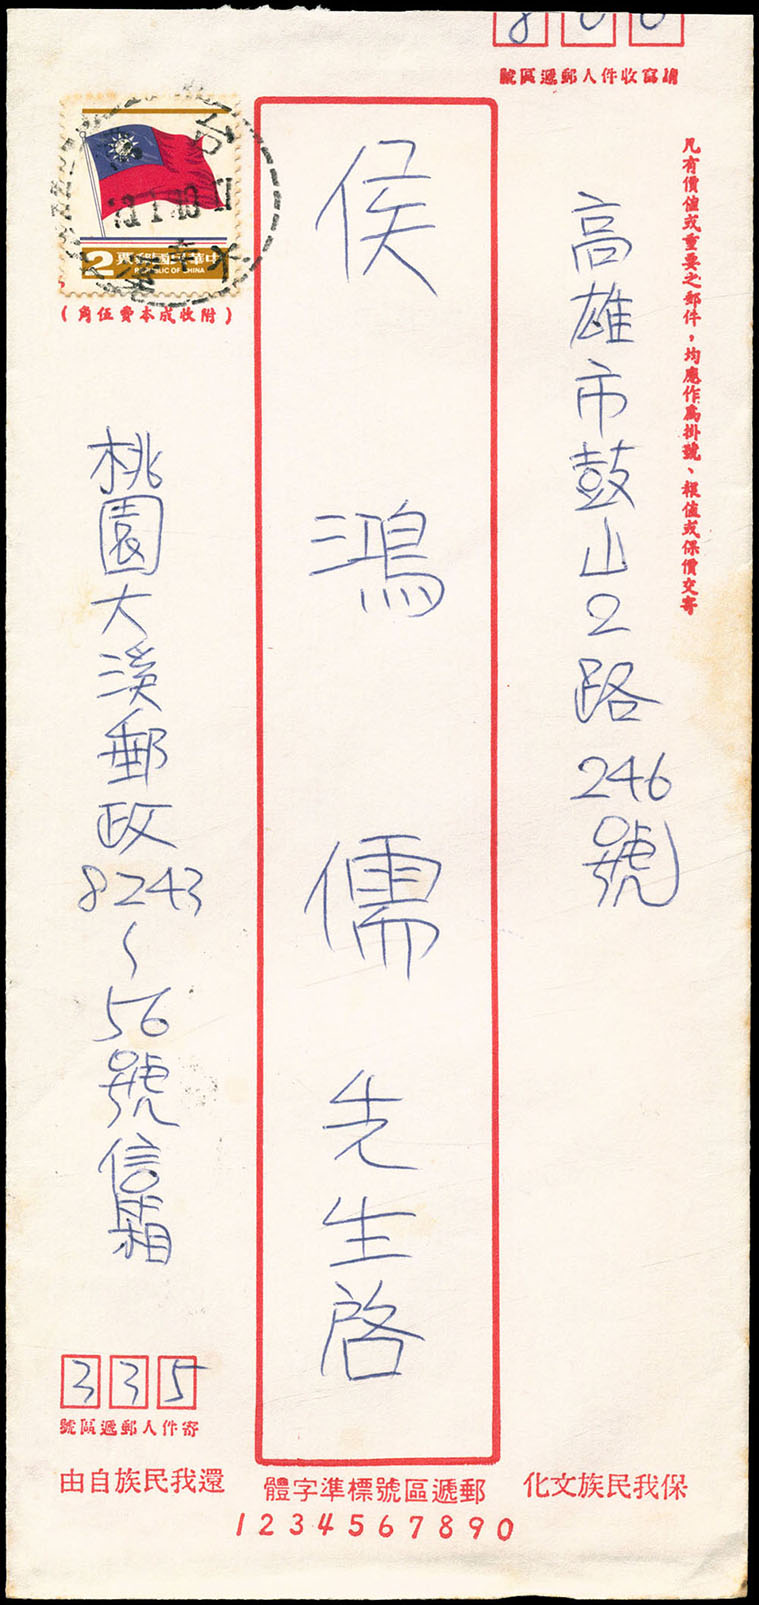 800
請寫收件人郵遞區號
凡有價值或重要之郵件，均應作為掛號、報值或保價交寄
高雄市鼓山2路246號
侯鴻儒先生啓
中華民國郵票
2 REPUBLIC OF CHINA
（附收成本費伍角）
桃園大溪郵政8243~56號信箱
335
寄件人郵遞區號
保我民族文化
郵遞區號標準字體
1234567890
還我民族自由